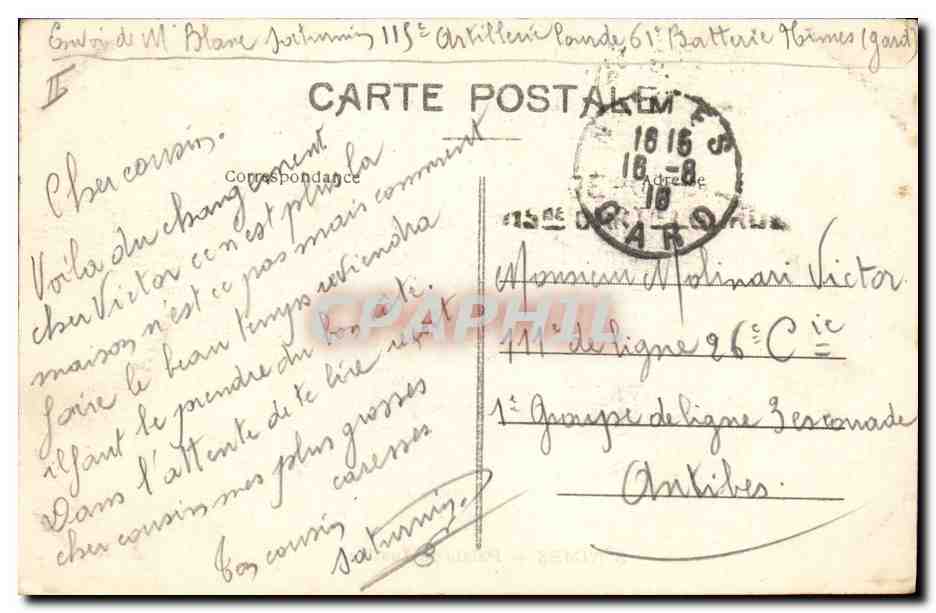 Envoi de Mr Blanc Saturnin 115e Artillerie Lourde 61e Batterie Nîmes (Gard)
II
CARTE POSTALE
NIMES
16 15
16 -8
16
GARD
Correspondance
Adresse
115ME D'ARTILLERIE LOURDE
Cher cousin.
Voila du changement
cher Victor ce n'est plus la
maison n'est ce pas mais comment
faire le beau temps reviendra
il faut le prendre du bon côté.
Dans l'attente de te lire reçoit
cher cousin mes plus grosses
caresses
Ton cousin
Saturnin
Monsieur Molinari Victor
111e de ligne 26e Cie
1e Groupe de ligne 3 escouade
Antibes
CPAPHIL